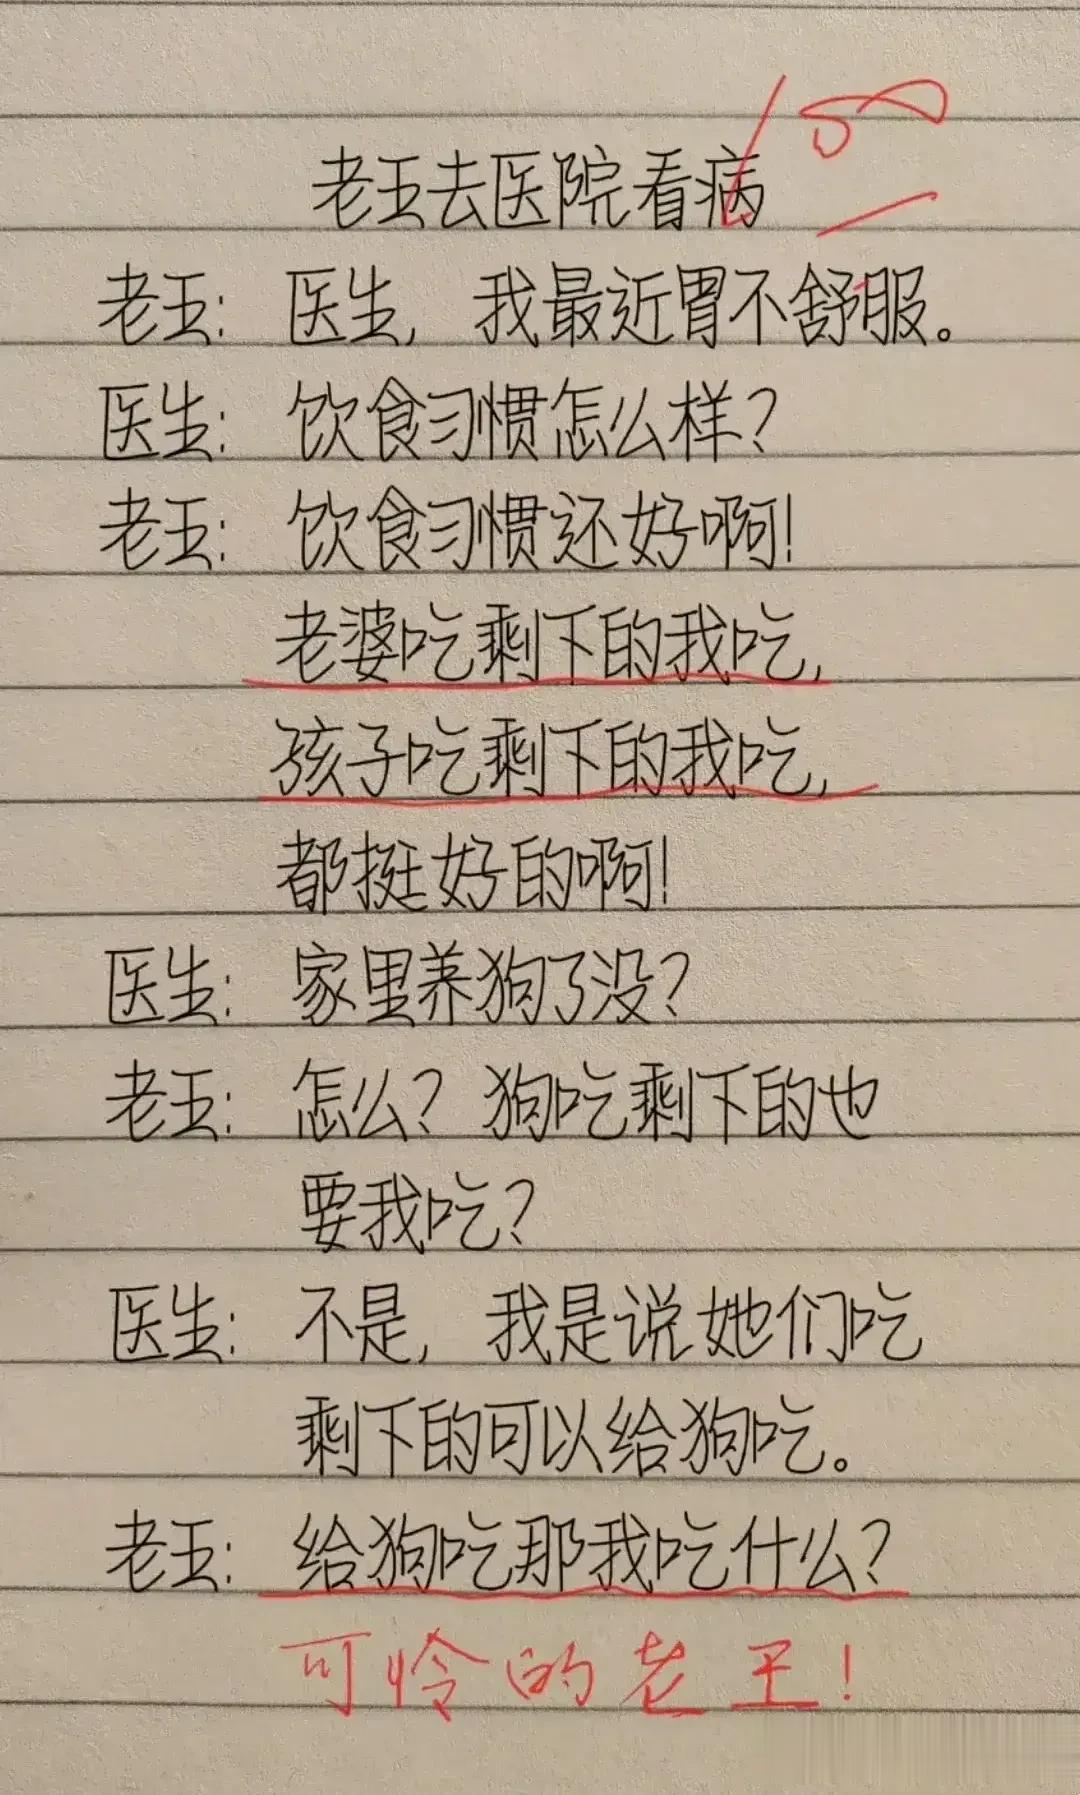 老王去医院看病
老王：医生，我最近胃不舒服。
医生：饮食习惯怎么样？
老王：饮食习惯还好啊！
老婆吃剩下的我吃，
孩子吃剩下的我吃，
都挺好的啊！
医生：家里养狗了没？
老王：怎么？狗吃剩下的也
要我吃？
医生：不是，我是说她们吃
剩下的可以给狗吃。
老王：给狗吃那我吃什么？
可怜的老王！